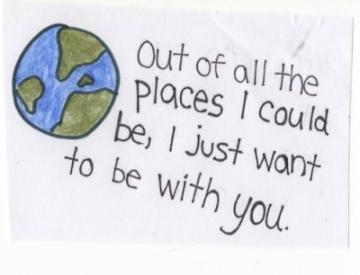 Out of all the
places I could
be, I just want
to be with you.